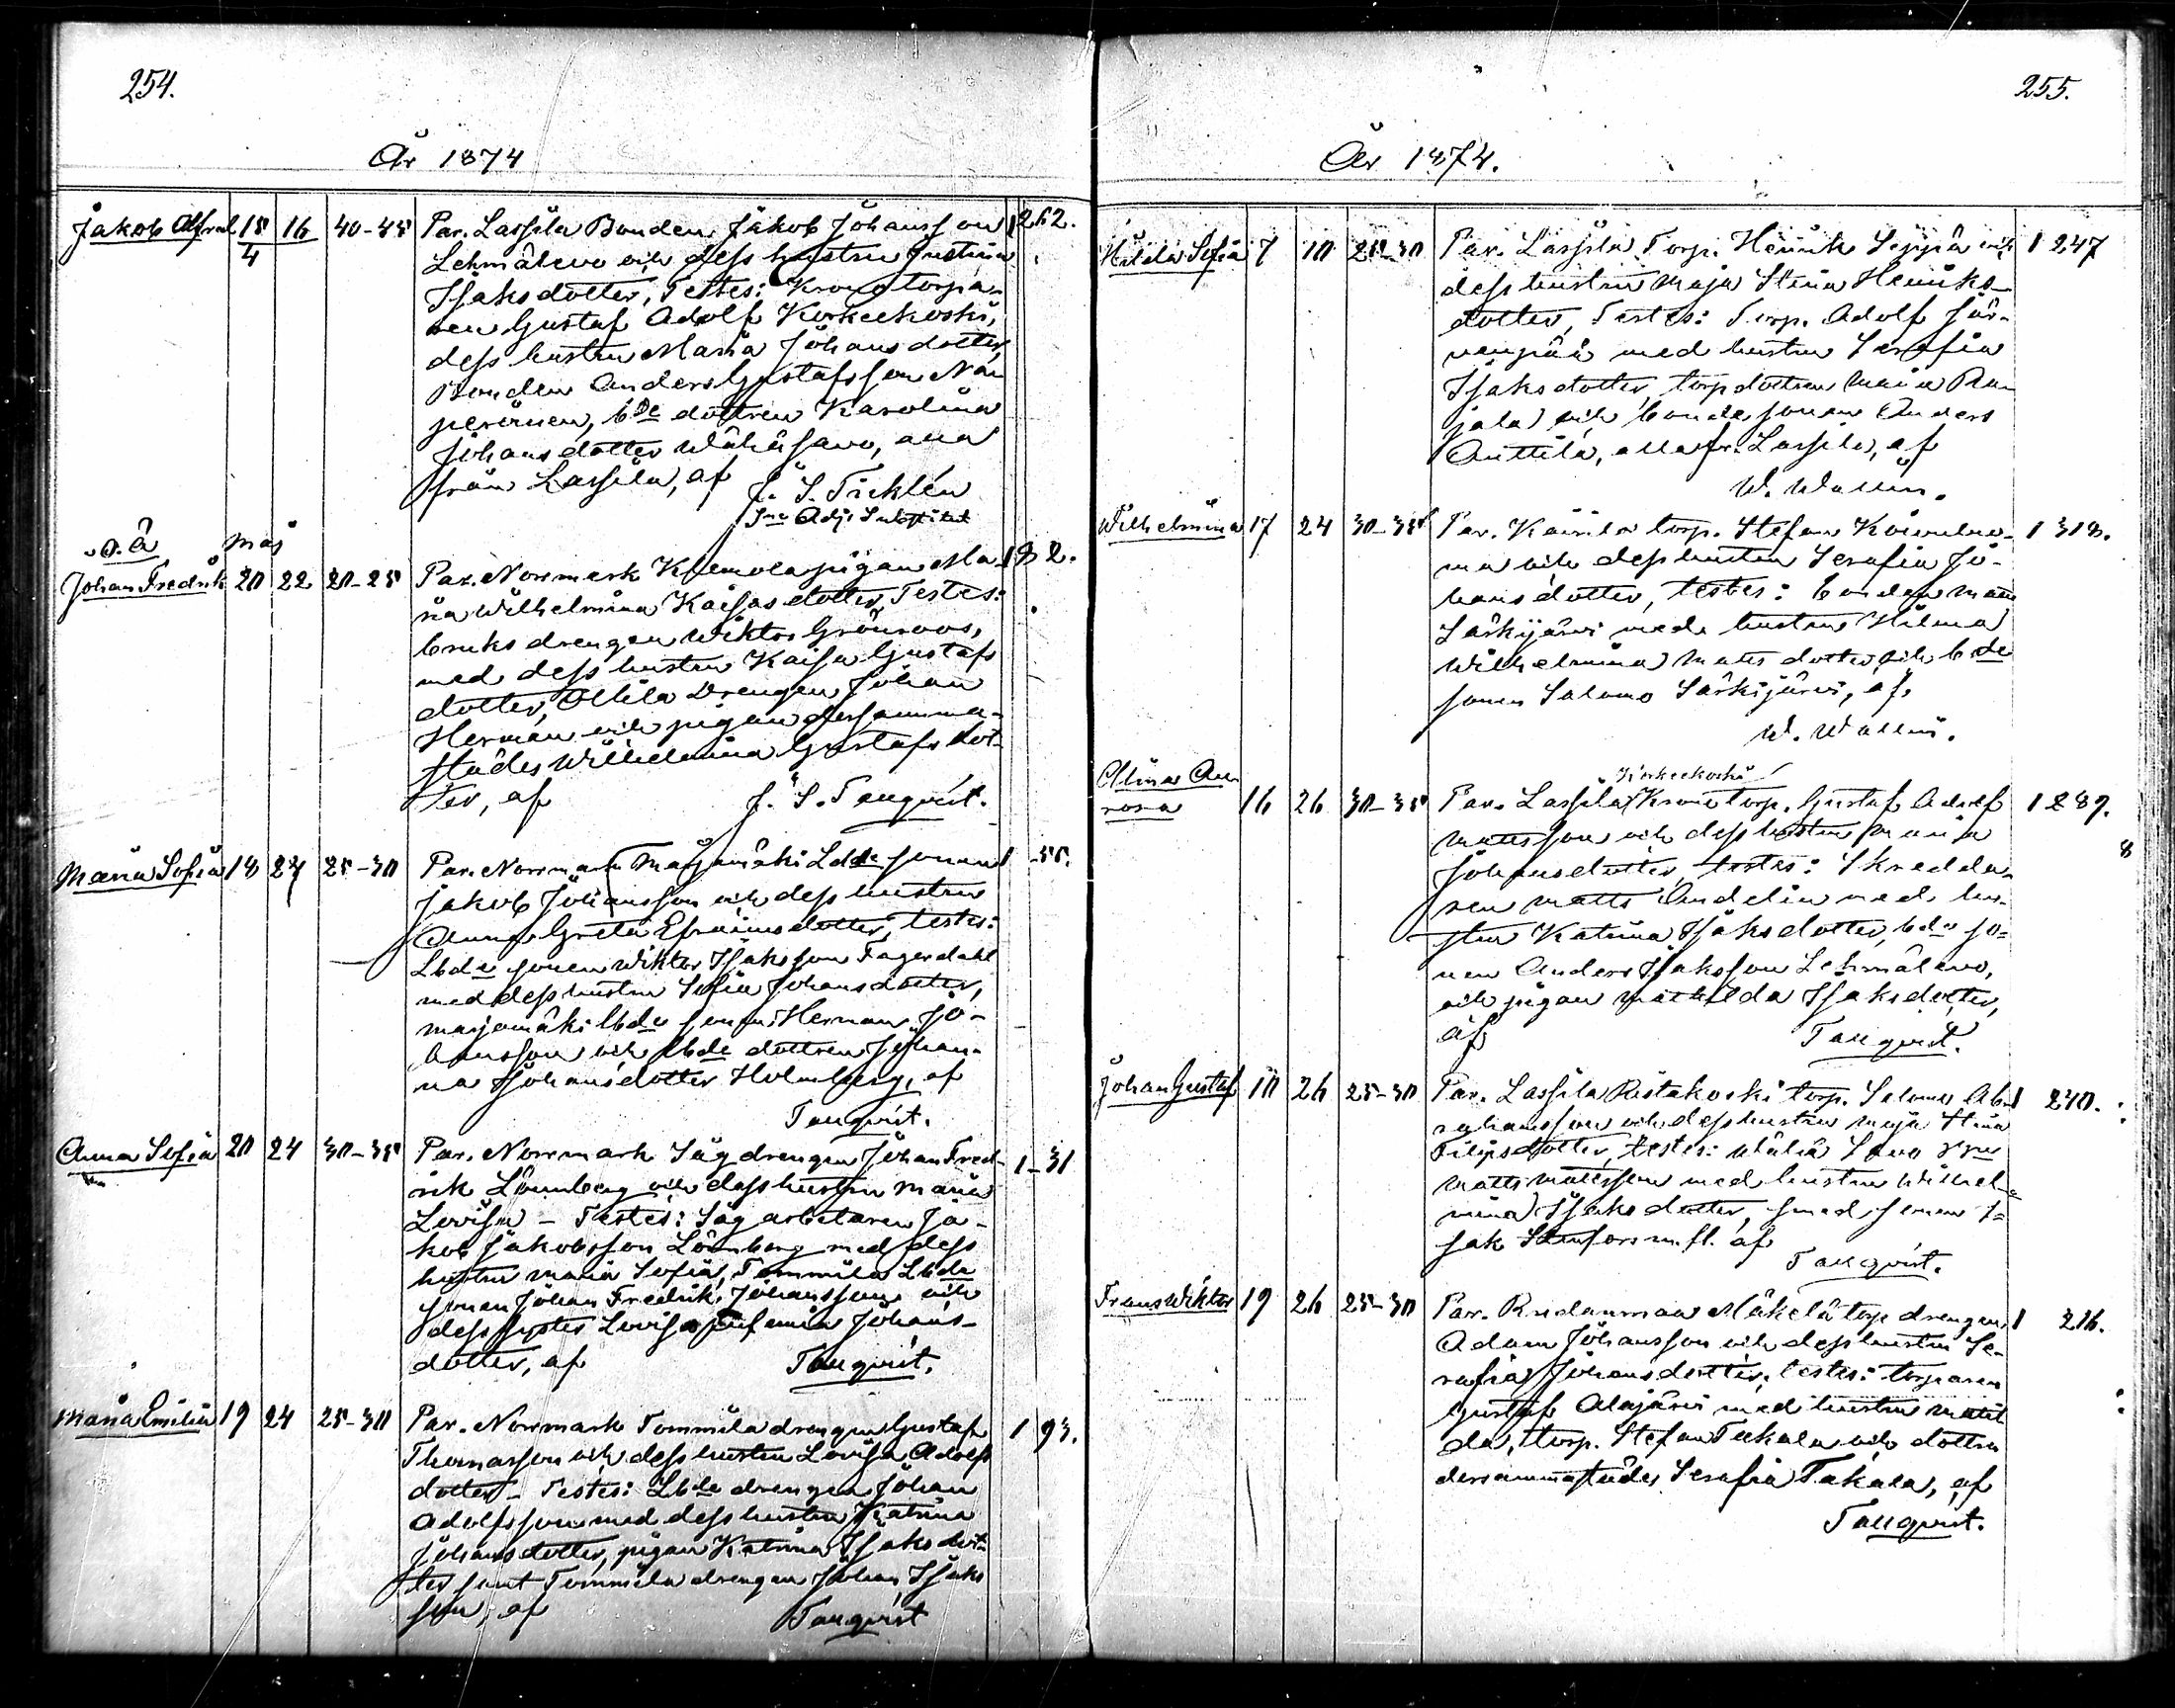 254.
År 1874
Jakob Alfred 15/4 16 40-45 Par. Lassila Bonden Jakob Johansson 1 262.
Lehmälewo och dess hustru Justina
Isaksdotter, Testes: Kronotorpa-
ren Gustaf Adolf Korkeekoski,
dess hustru Maria Johansdotter,
Bonden Anders Gustafsson Nau
peräinen, bde dottren Karolina
Johansdotter Wähäsavo, alla
från Lassila, af J. S. Ticklén
Sne Adj. Substitut
o.ä Maj
Johan Fredrik 20 22 20-25 Par. Norrmark Klemola pigan Ma 1 82.
ria Wilhelmina Kaisasdotter, Testes:
bruks drengen Wiktor Grönroos,
med dess hustru Kaisa Gustafs
dotter, Ollila Drengen Johan
Herman och pigan dersamma-
städes Wilhelmina Gustafs dot-
ter, af J. S. Tanqvist.
Maria Sofia 18 24 25-30 Par. Norrmark Marjamäki Lbde sonen 1 55.
Jakob Johansson och dess hustru
Anna Greta Efraimsdotter, testes:
Lbde sonen Wiktor Isaksson Fagerdahl
med dess hustru Sofia Johansdotter,
Marjamäki lbde sonen Herman Jo-
hansson och lbde dottren Johan-
na Johansdotter Holmberg, af
Tanqvist.
Anna Sofia 20 24 30-35 Par. Norrmark Sågdrengen Johan Fred- 1 31
rik Lönnberg och dess hustru Maria
Lovisa - Testes: Sågarbetaren Ja-
kob Jakobsson Lönnberg med dess
hustru Maria Sofia, Tommila Lbde
sonen Johan Fredrik Johansson och
dess syster Lovisa Eufemia Johans-
dotter, af Tanqvist.
Maria Emilia 19 24 25-30 Par. Norrmark Tommila drengen Gustaf 1 93.
Thomasson och dess hustru Lovisa Adolfs
dotter - Testes: Lbde drengen Johan
Adolfsson med dess hustru Katrina
Johansdotter, pigan Katrina Isaks dot-
ter samt Tommila drengen Johan Isaks
son, af Tanqvist
255.
År 1874.
Hilda Sofia 7 10 25-30 Par. Lassila Torp. Henrik Seppä och 1 247
dess hustru Maja Stina Henriks-
dotter, Testes: Torp. Adolf Jär-
venpää med hustru Serafia
Isaksdotter, torp dottren Maria Ran
jala och bondesonen Anders
Anttila, alla fr. Lassila, af
W. Wallin.
Wilhelmina 17 24 30-35 Par. Kairila torp. Stefan Koivulue- 1 318.
ma och dess hustru Serafia Jo-
hansdotter, testes: bonden Matts
Särkijärvi med hustru Hilma
Wilhelmina Matts dotter och bde
sonen Salomo Särkijärvi, af,
W. Wallin.
Korkeekoski
Alina Au
rora 16 26 30-35 Par. Lassila Kronotorp. Gustaf Adolf 1 289.
Mattsson och dess hustru Maria
Johansdotter, testes: Skredda-
ren Matts Andelin med hu-
stru Katrina Isaksdotter, bde so-
nen Anders Isaksson Lehmälewo,
och pigan Mathilda Isaksdotter,
af Tanqvist.
8
Johan Gustaf 10 26 25-30 Par. Lassila Ristakoski torp. Salomo Ab- 1 240.
rahamsson och dess hustru Maja Stina
Filipsdotter, testes: Wähä Savo
Matts Mattsson med hustru Wilhel-
mina Isaksdotter, smed sonen I-
sak Stenfors m.fl. af
Tanqvist.
Frans Wiktor 19 26 25-30 Par. Rudanmaa Mäkelä torp drengen 1 216.
Adam Johansson och dess hustru Se-
rafia Johansdotter, testes: torparen
Gustaf Alajärvi med hustru Matil
da, torp. Stefan Takala och dottren
dersammastädes Serafia Takala, af
Tanqvist.